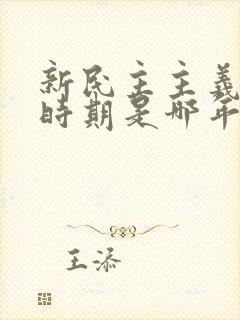 新民主主義
時期是哪年
王添